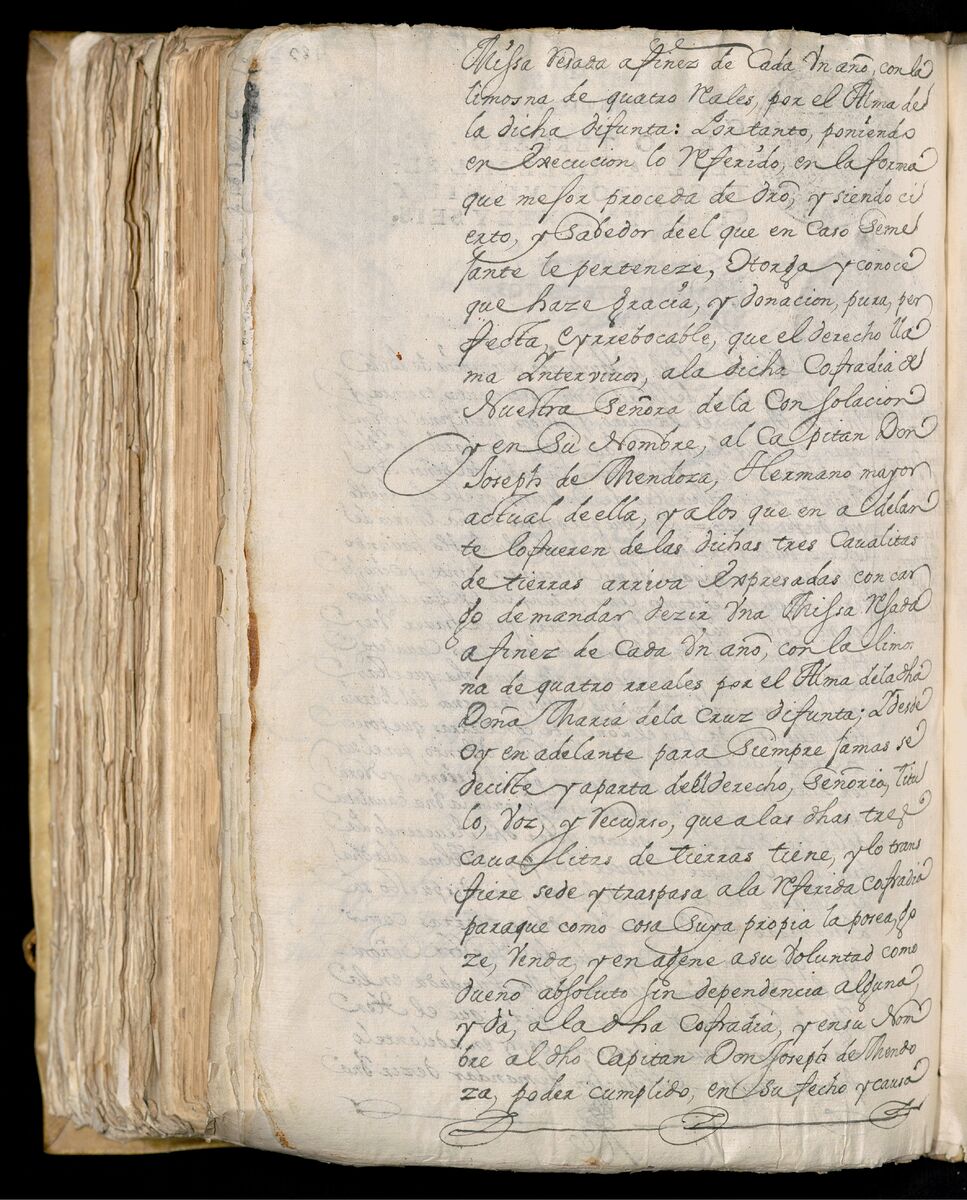 Missa resada afinez de Cada Vn año, con la
limosna de quatro Reales, por el Alma de
la dicha difunta: Por tanto, poniendo
en Execucion lo Referido, en la forma
que mejor proceda de dro, y siendo ci
erto, y Sabedor de el que en Caso Seme
jante le perteneze, Otorga y conoce
que haze gracia, y donacion, pura, per
fecta, e yrrebocable, que el derecho lla
ma Yntervivos, a la dicha Cofradia de
Nuestra Señora de la Consolacion
y en Su Nombre, al Capitan Don
Joseph de Mendoza, Hermano mayor
actual de ella, y a los que en adelan
te lo fueren de las dichas tres Caualitas
de tierras arriva Expresadas con car
go de mandar dezir Vna Missa Resada
afinez de Cada Vn año, con la limos
na de quatro rreales por el Alma de la dha
Doña Maria de la Cruz difunta; Y desde
oy en adelante para Siempre jamas se
deciste y aparta del derecho, Señorio, titu
lo, Voz, y Recurso, que a las dhas tres
caualitas de tierras tiene, y lo trans
fiere sede y traspasa a la Referida Cofradia
para que como cosa Suya propia la posea, go
ze, Venda, y enagene a su Voluntad como
dueño absoluto sin dependencia alguna,
y dá, a la dha Cofradia, y en su Nom
bre al dho Capitan Don Joseph de Mendo
za, poder cumplido, en Su fecho y causa